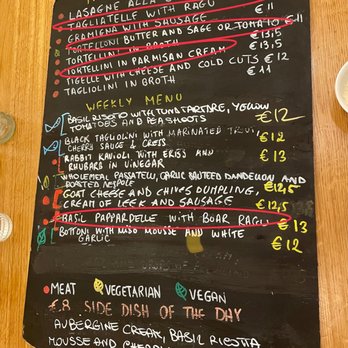 LASAGNE ALLA
TAGLIATELLE WITH RAGU €11
GRAMIGNA WITH SAUSAGE €11
TORTELLONI BUTTER AND SAGE OR TOMATO €11
TORTELLINI IN BROTH €13,5
TORTELLINI IN PARMISAN CREAM €13,5
TIGELLE WITH CHEESE AND COLD CUTS €12
TAGLIOLINI IN BROTH €11
WEEKLY MENU
BASIL RISOTTO WITH TUNA TARTARE, YELLOW
TOMATOES AND PEASHOOTS €12
BLACK TAGLIOLINI WITH MARINATED
CHERRY SAUCE & €12
RABBIT RAVIOLI WITH AND
RHUBARB IN VINEGAR €13
WHOLEMEAL PASSATELLI, GARLIC SAUTEED DANDELION AND
ROASTED €12,5
GOAT CHEESE AND CHIVES DUMPLING,
CREAM OF LEEK AND SAUSAGE €12,5
BASIL PAPPARDELLE WITH BOAR RAGU €13
BOTTONI WITH MOUSSE AND WHITE
GARLIC €12
MEAT VEGETARIAN VEGAN
€8 SIDE DISH OF THE DAY
AUBERGINE CREAM, BASIL RICOTTA
MOUSSE AND CHERRY